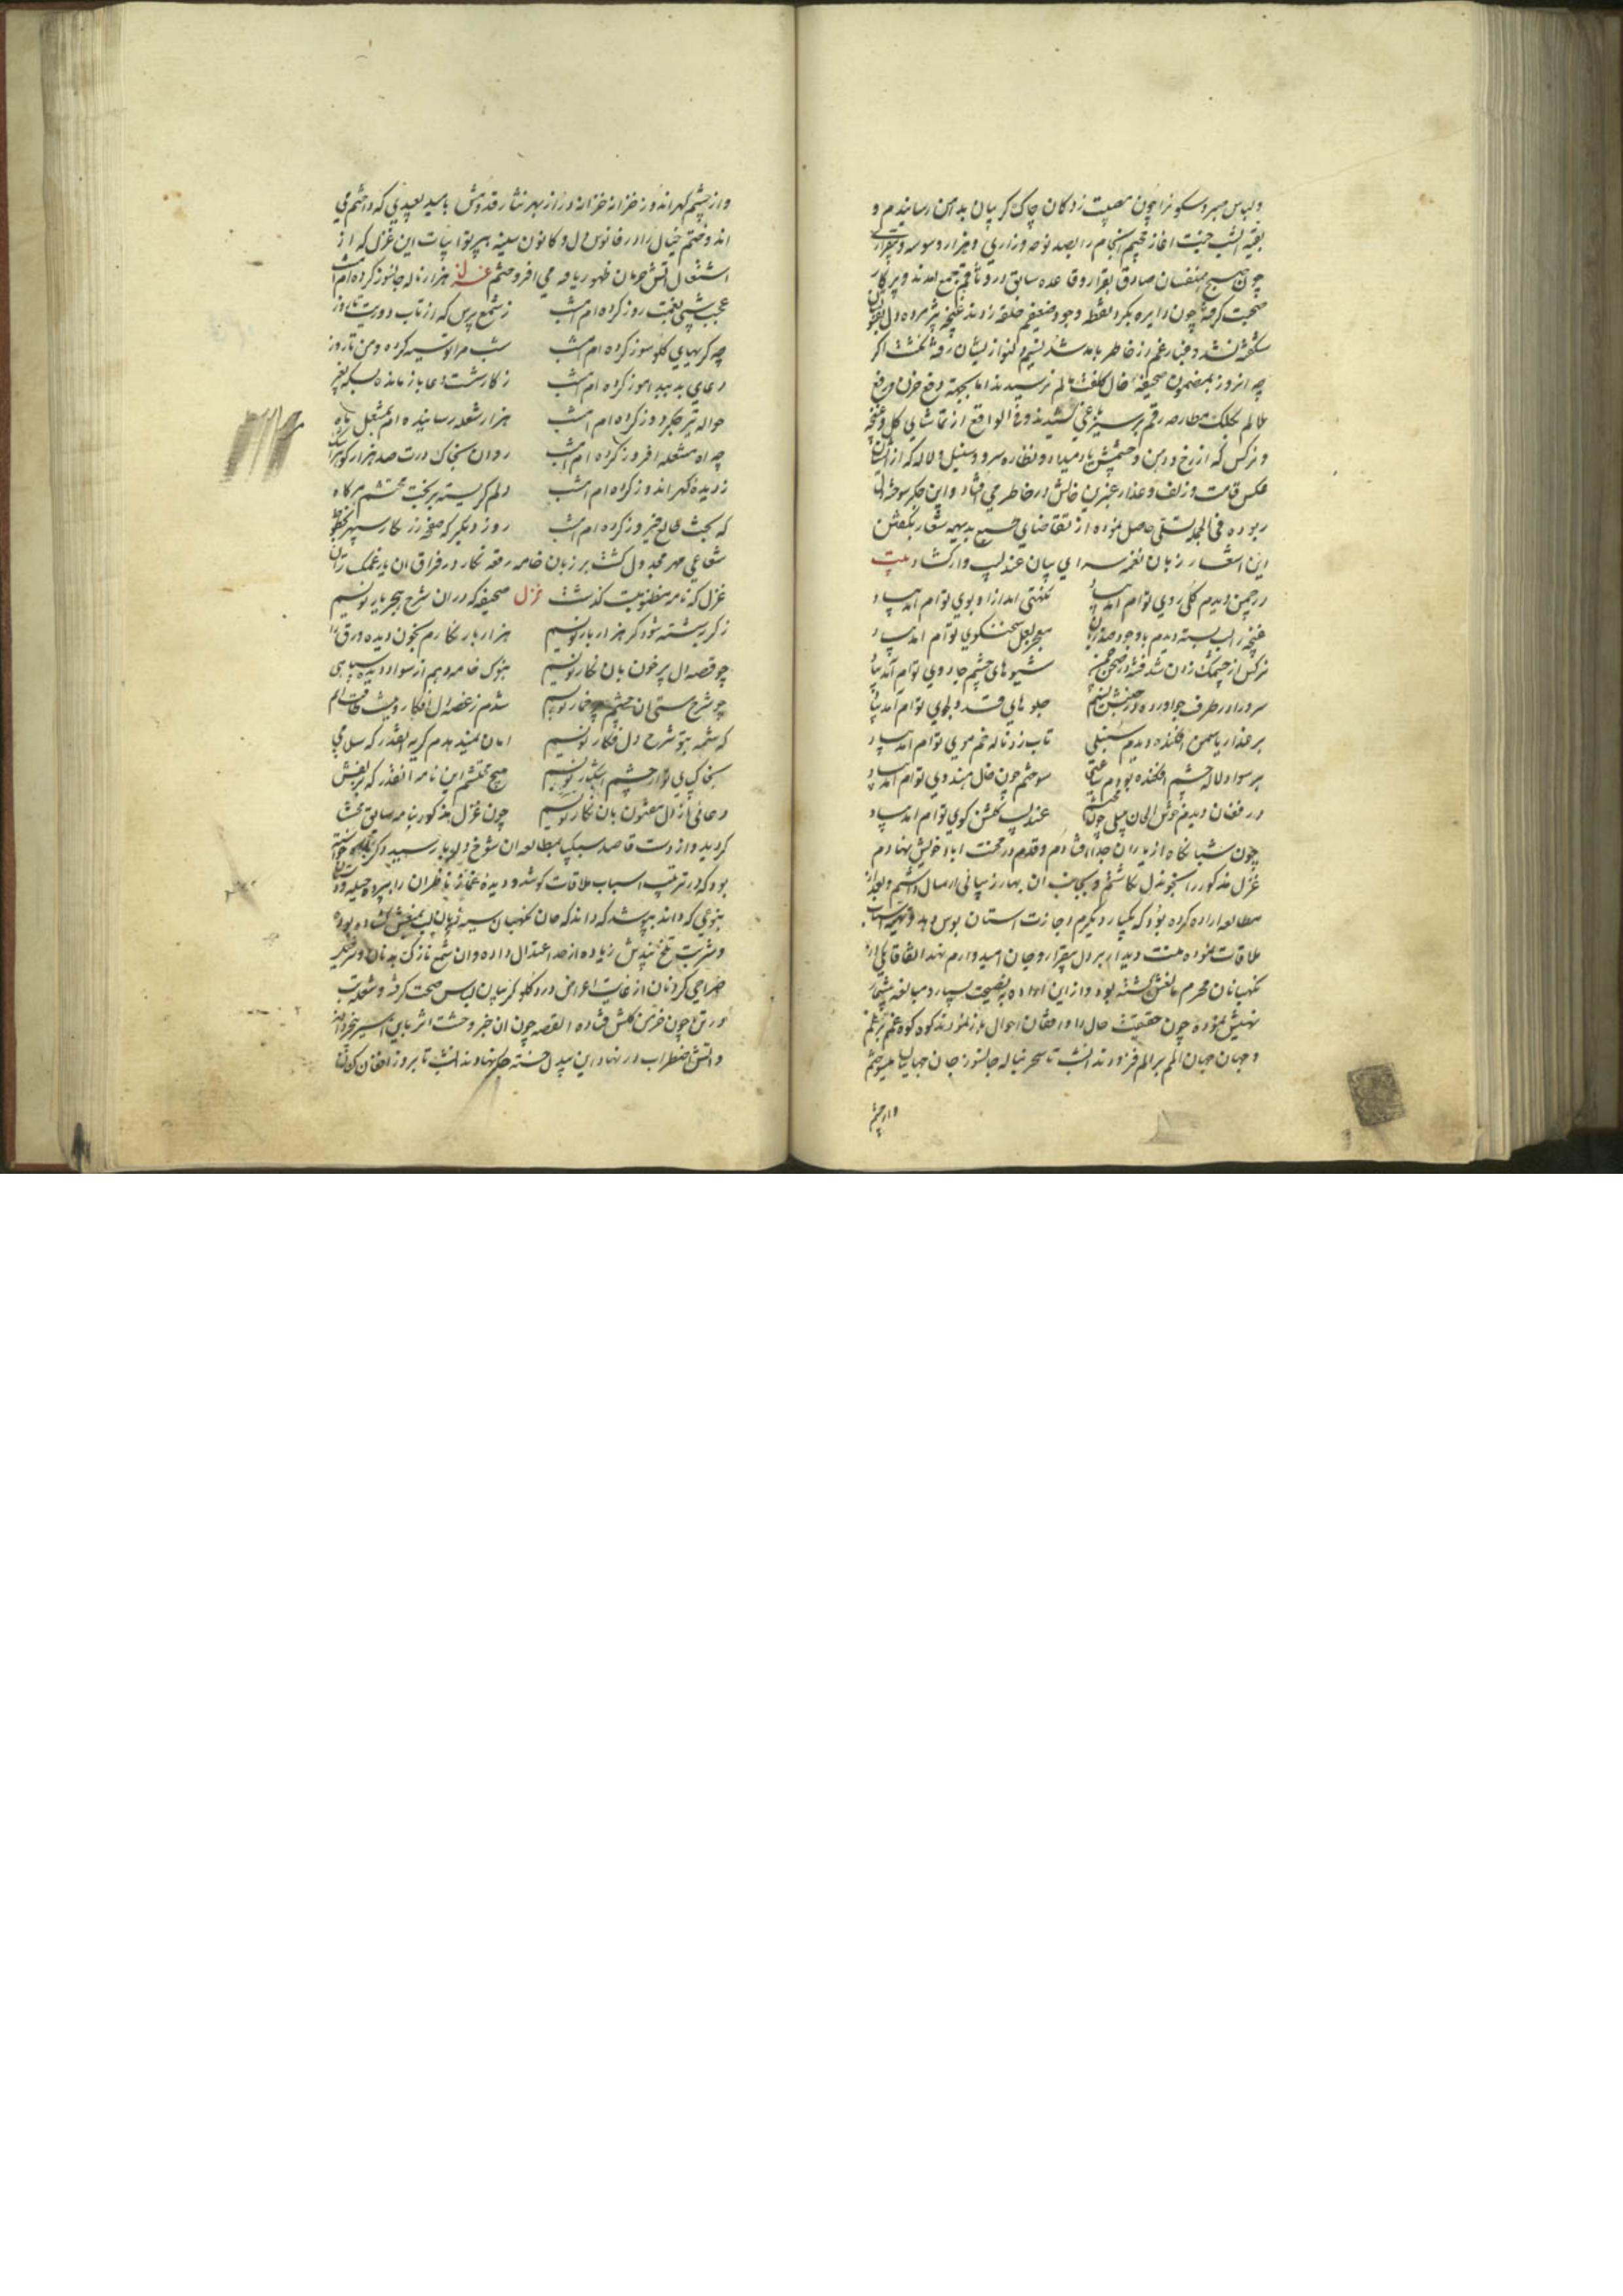 و لباس صبر و سکون را چون مصیبت زدگان چاک گریبان بدامن رسانیدم و
بقیه انشب محنت اغاز محنم انجام را بصد نوحه و زاری و هزار وسوسه و بیقراری
چون صبح همنفسان صادق بقرار و قاعده سابق در وثاقم جمع امدند و پرکار
صحبت کرفته چون دایره بکرد نقطه وجود ضعیفم حلقه زدند غنچه پژمرده دل
شکفته نشد و غبار غم از خاطر
چه انروز بمضمون صحیفه
عالم بکلک و فی الواقع از تماشای کل و غنچه
و نرکس که از رخ و دهن و چشمش یاد میداد و نظاره سرو و سنبل و لاله که از ایشان
عکس قامت و زلف و عذار عنبرین خالش در خاطر می افتاد و این جکر سوخته
ربوده فی الجمله تسلی حاصل نموده از تقاضای بدیهه شعار بکفتن
این اشعار زبان نغمه سرای بیان عندلیب وار کشاد بیت
در چمن دیدم کلی روی توام امد بیاد نکهتی امد ازا و بوی توام امد بیاد
غنچه را لب بسته دیدم با وجود صد زبان معجز لعل سخنکوی توام امد بیاد
نرکس از چشمک زدن شد فتنه در صحن چمن شیوهای چشم جادوی توام امد بیاد
سرو را در طرف جو اورد در جنبش نسیم جلوهای قد دلجوی توام امد بیاد
بر عذار یاسمن افکنده دیدم سنبلی تاب زد ناله خم موی توام امد بیاد
بر سواد لاله چشم افکنده بودم ساعتی سوختم چون خال هندوی توام امد بیاد
در فغان دیدم خوش الحان بلبلی چون محتشم عندلیب کلشن کوی توام امد بیاد
چون شبانکاه از یاران جدا افتادم و قدم در محنت اباد خویش نهادم
غزل مذکور را بخونه دل نکاشتم و بجانب ان بهار زیبائی ارسال داشتم و بعد از
مطالعه اراده کرده بود که یکبار دیکرم اجازت استان بوس دهد و تهیه اسباب
ملاقات نموده منت دیدار بر دل بیقرار و جان امیدوارم نهد اتفاقا یکی از
نکهبانان محرم مانعش کشته بود و از این اراده به نصیحت بسیار و مبالغه بیشمار
نهیش نموده چون حقیقت حال را و رفقان احوال باز نمودند کوه کوه غم بر غم
و جهان جهان الم بر الم فزودند انشب تا سحر بناله جانسوز جان جهانیان میسوختم
و از چشم
و از چشم کهر اندوز خزانه خزانه در از بهر نثار قدومش بامید بعیدی که داشتم می
اندوختم خیال را در فانوس دل و کانون سینه بپرتو ابیات این غزل که از
اشتعال اتش حرمان ظهور یافته می افروختم غزل هزار ناله جانسوز کرده ام امشب
عجب شبی بغمت روز کرده ام امشب ز شمع پرس که از تاب دوریت تا روز
چه کریهای کلو سوز کرده ام امشب شب مرا تو سیه کرده و من تا روز
دعای بد بید اموز کرده ام امشب ز کار شست دعا باز مانده بسکه بغیر
حواله تیر جکر دوز کرده ام امشب هزار شعله رسانیده ام بمشعل ماه
چه اه مشعله افروز کرده ام امشب روان بخاک درت صد هزار کوهر
ز دیده کهر اندوز کرده ام امشب دلم کریسته بر بخت محتشم هر کاه
که بحث طالع فیروز کرده ام امشب روز دیکر که صفحه زر نکار سپهر بخطوط
شعاعی مهر مجدول کشت بر زبان خامه رقعه نکار در فراق ان یار غمکسار این
غزل که نامه منظومیست کذشت غزل صحیفه که در ان شرح هجر یار نویسم
ز کریه شسته شود کر هزار بار نویسم هزار بار نکارم بخون دیده ورق را
چو قصه دل پر خون بان نکار نویسم بنوک خامه دهم از سواد دیده سیاهی
چو شرح مستی ان چشم پر خمار نویسم شدم ز غصه دل افکار و نیست طاقت انم
که شمه بتو شرح دل فکار نویسم امان نمیدهدم کریه انقدر که سلامی
بخاک پای تو از چشم اشکبار نویسم مپیچ محتشم این نامه را انقدر که بریشش
دعائی از دل مفتون بان نکار نویسم چون غزل مذکور بنامه سابق ملحق
کردید و از دست قاصد سبکپا بمطالعه ان شوخ دلربا رسید دکر
بود که در ترتیب اسباب ملاقات کوشد و دیده غماز ناظران را بپرده حیله و
بنوعی که داند بپوشد که داند که جان نکهبان سیه زبان لب بمنعش کشاده بود
و شربت تلخ پندش زیاده از حد اعتدال داده و ان شمع نازک بدنان و سرخیل
صراحی کردنان از غایت اعراض درد کلو کریبان لباس صحت کرفته و شعله تب
در تن چون خرمن کلش فتاده القصه چون ان خبر وحشت اثر باین اسیر
و اتش اضطراب در نهاد این بیدل خسته جکر نهادند انشب تا بروز افغان کنان